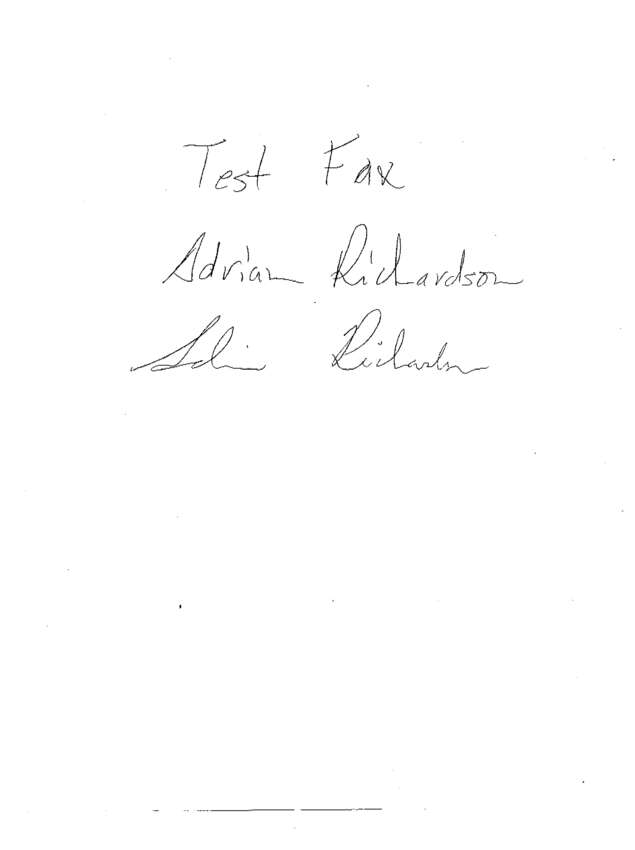 Test Fax
Adrian Richardson
Adrian Richardson